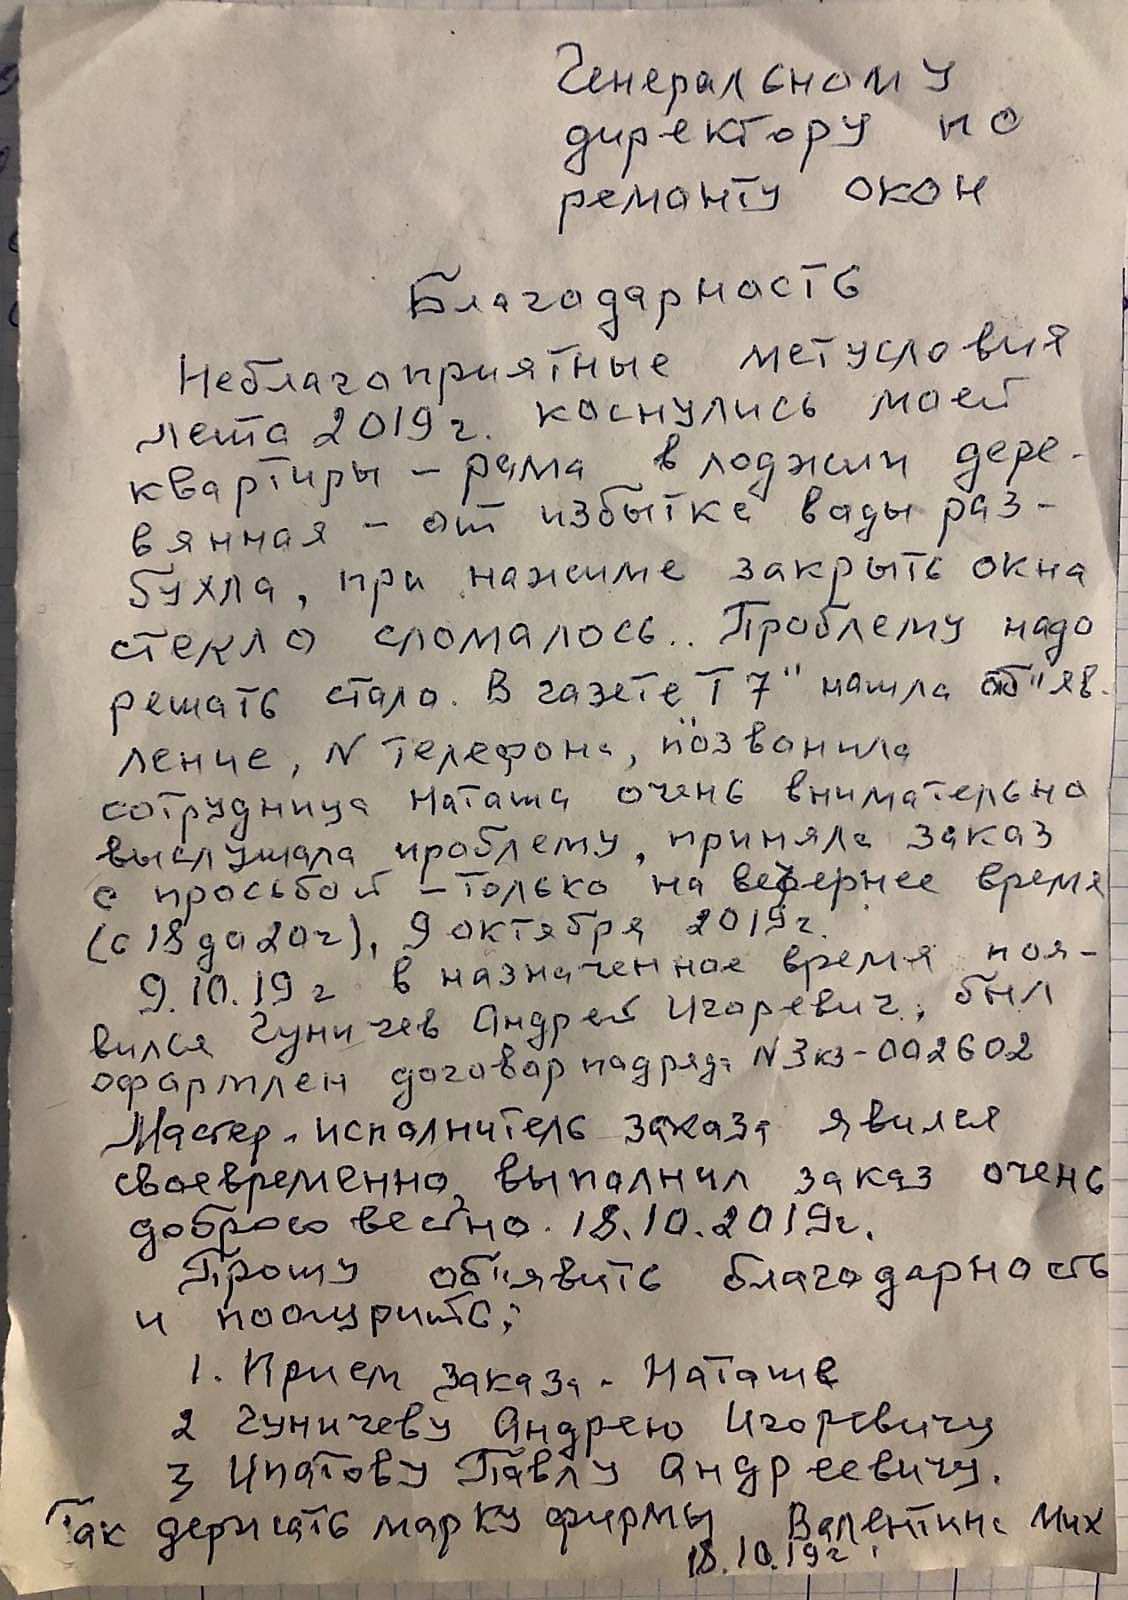 Генеральному
директору по
ремонту окон
Благодарность
Неблагоприятные метусловия
лета 2019г. коснулись моей
квартиры – рама в лоджии дере-
вянная – от избытка воды раз-
бухла, при нажиме закрыть окна
стекло сломалось.. Проблему надо
решать стало. В газете Т 7" нашла об"яв-
ление, N телефона, позвонила
сотрудница Наташа очень внимательно
выслушала проблему, приняла заказ
с просьбой – только на вечернее время
(с 18 до 20ч), 9 октября 2019г.
9.10.19г в назначенное время поя-
вился Гуничев Андрей Игоревич, был
оформлен договор подряда N Зкз-002602
Мастер-исполнитель заказа явился
своевременно, выполнил заказ очень
добросовестно. 18.10.2019г.
Прошу об"явить благодарность
и поощрить:
1. Прием заказа - Наташе
2 Гуничеву Андрею Игоревичу
3 Ипатову Павлу Андреевичу.
Так держать марку фирмы Валентина Мих
18.10.19г.